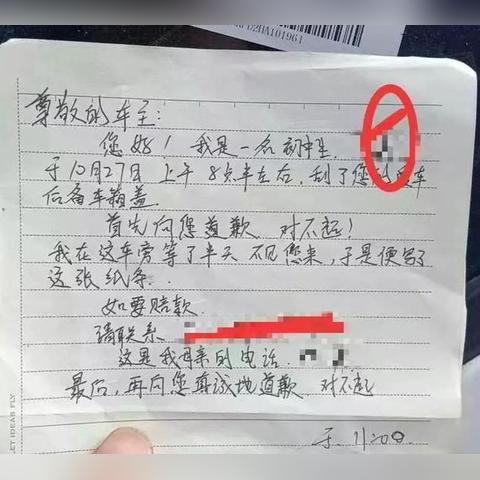 D2HA101961
尊敬的车主:
您好! 我是一名初中生,
于10月27日上午8点半左右,刮了您的
后备车箱盖.
首先向您道歉 对不起!
我在这车旁等了半天 不见您来,于是便写了
这张纸条.
如要赔款
请联系
这是我母亲的电话.
最后,再向您真诚地道歉 对不起
于 11:20
LET IDEAS FLY